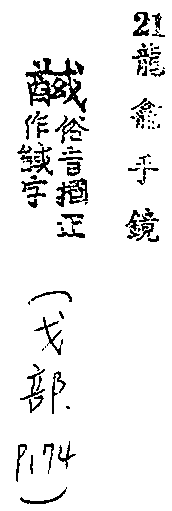 21龍龕手鏡
俗音摑正
作馘字
(戈部.P174)